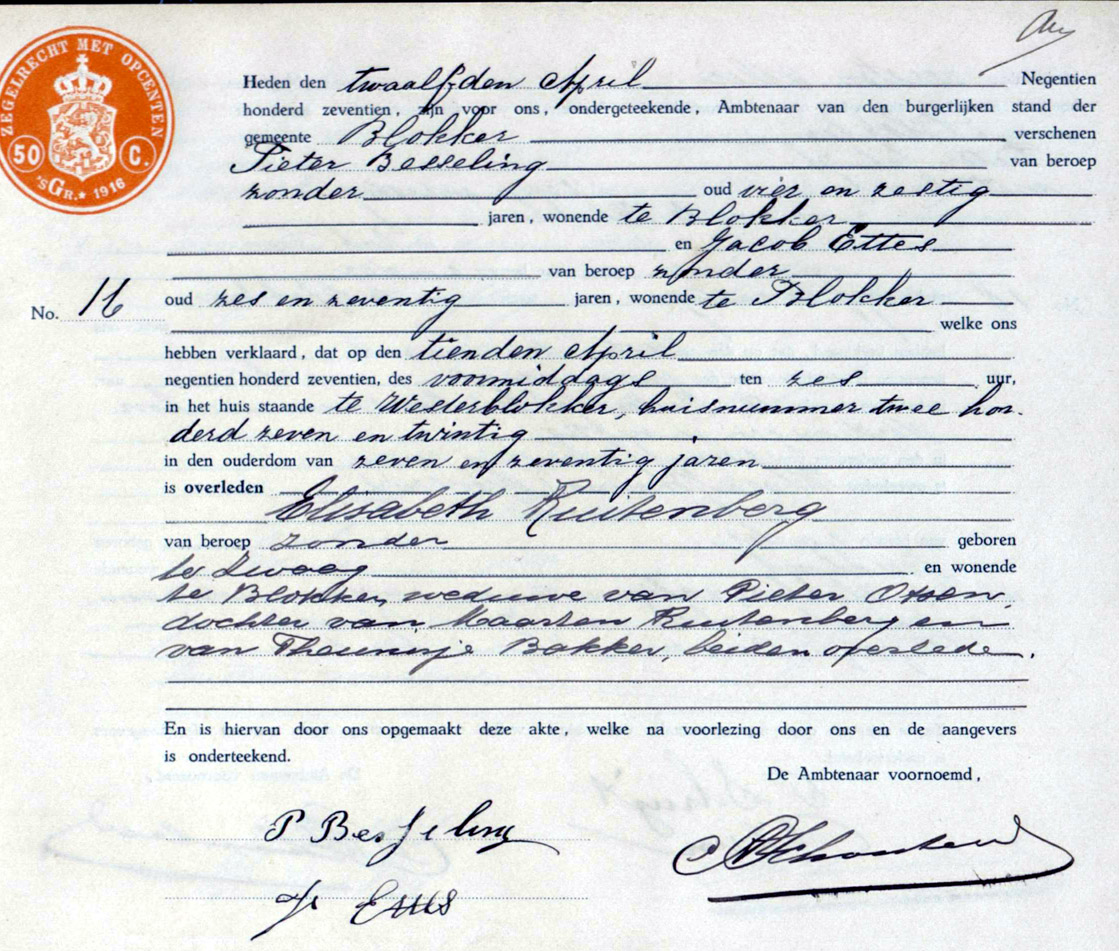 ZEGELRECHT MET OPCENTEN
50 C.
'sGr.★ 1916
Heden den twaalfden April Negentien
honderd zeventien, zijn voor ons, ondergeteekende, Ambtenaar van den burgerlijken stand der
gemeente Blokker verschenen
Pieter Besseling van beroep
zonder oud vier en zestig
jaren, wonende te Blokker
en Jacob Ettes
van beroep zonder
No. 16 oud zes en zeventig jaren, wonende te Blokker
welke ons
hebben verklaard, dat op den tienden April
negentien honderd zeventien, des voormiddags ten zes uur,
in het huis staande te Westerblokker, huisnummer twee hon-
derd zeven en twintig
in den ouderdom van zeven en zeventig jaren
is overleden
Elisabeth Ruitenberg
van beroep zonder geboren
te Zwaag en wonende
te Blokker, weduwe van Pieter
dochter van Maarten Ruitenberg en
van Theunisje Bakker, beiden overleden.
En is hiervan door ons opgemaakt deze akte, welke na voorlezing door ons en de aangevers
is onderteekend.
De Ambtenaar voornoemd,
P Besseling